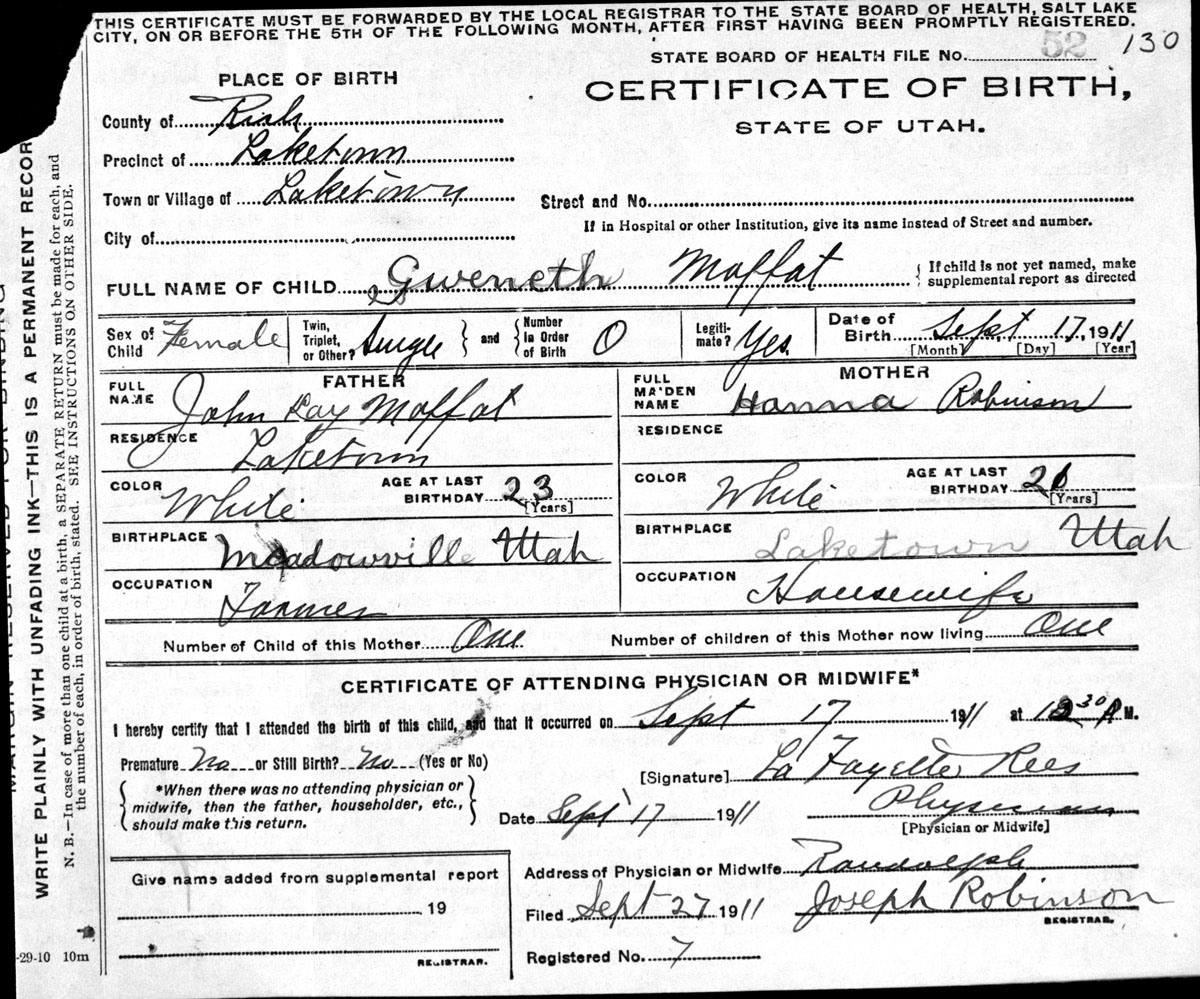 THIS CERTIFICATE MUST BE FORWARDED BY THE LOCAL REGISTRAR TO THE STATE BOARD OF HEALTH, SALT LAKE
CITY, ON OR BEFORE THE 5TH OF THE FOLLOWING MONTH, AFTER FIRST HAVING BEEN PROMPTLY REGISTERED.
STATE BOARD OF HEALTH FILE No. 52 130
PLACE OF BIRTH
CERTIFICATE OF BIRTH,
STATE OF UTAH.
County of Rich
Precinct of Laketown
Town or Village of Laketown
Street and No.
If in Hospital or other Institution, give its name instead of Street and number.
City of
FULL NAME OF CHILD Gweneth Moffat
{ If child is not yet named, make
supplemental report as directed
Sex of Child Female
Twin, Triplet, or Other? Single } and { Number in Order of Birth 0
Legiti-mate? Yes
Date of Birth Sept 17, 1911
[Month] [Day] [Year]
FATHER
FULL NAME John Kay Moffat
RESIDENCE Laketown
COLOR White AGE AT LAST BIRTHDAY 23 [Years]
BIRTHPLACE Meadowville Utah
OCCUPATION Farmer
MOTHER
FULL MAIDEN NAME Hanna Robinson
RESIDENCE
COLOR White AGE AT LAST BIRTHDAY [Years]
BIRTHPLACE Laketown Utah
OCCUPATION Housewife
Number of Child of this Mother One Number of children of this Mother now living One
CERTIFICATE OF ATTENDING PHYSICIAN OR MIDWIFE*
I hereby certify that I attended the birth of this child, and that it occurred on Sept 17 1911 at M.
Premature No or Still Birth? No (Yes or No)
[Signature] La Fayette Rees
{ *When there was no attending physician or
midwife, then the father, householder, etc.,
should make this return. }
Date Sept 17 1911
Physician
[Physician or Midwife]
Give name added from supplemental report
19
REGISTRAR.
Address of Physician or Midwife Randolph
Filed Sept 27 1911 Joseph Robinson
REGISTRAR.
Registered No. 7
WRITE PLAINLY WITH UNFADING INK—THIS IS A PERMANENT RECOR
N. B.—In case of more than one child at a birth, a SEPARATE RETURN must be made for each, and
the number of each, in order of birth, stated. SEE INSTRUCTIONS ON OTHER SIDE.
-29-10 10m